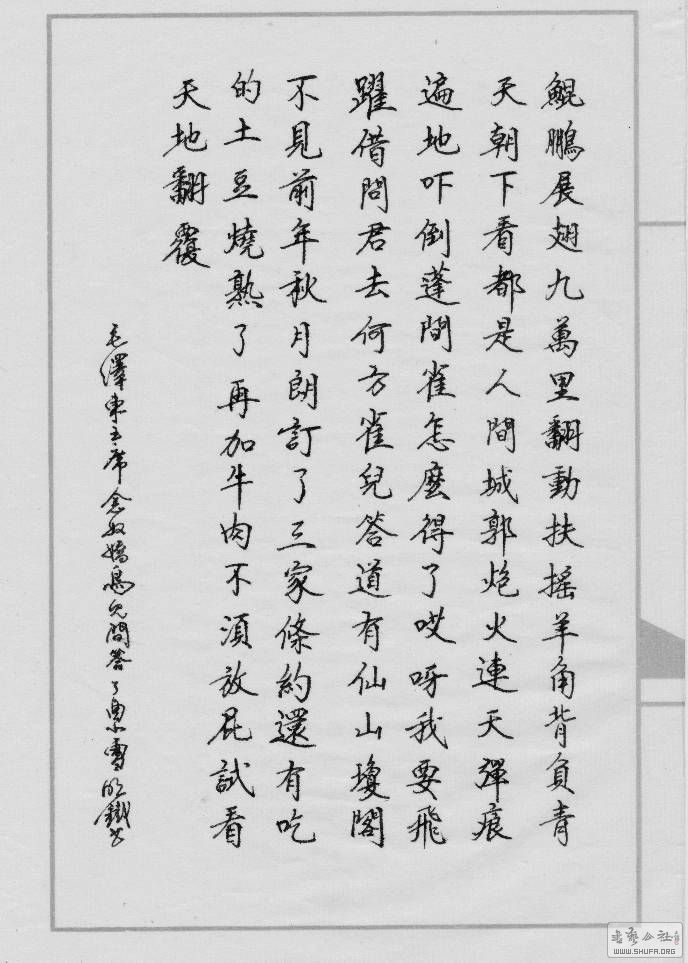 鯤鵬展翅九萬里翻動扶搖羊角背負青
天朝下看都是人間城郭炮火連天彈痕
遍地吓倒蓬間雀怎麼得了哎呀我要飛
躍借問君去何方雀兒答道有仙山瓊閣
不見前年秋月朗訂了三家條約還有吃
的土豆燒熟了再加牛肉不須放屁試看
天地翻覆
毛澤東主席念奴嬌鳥兒問答
書藝公社
WWW.SHUFA.ORG